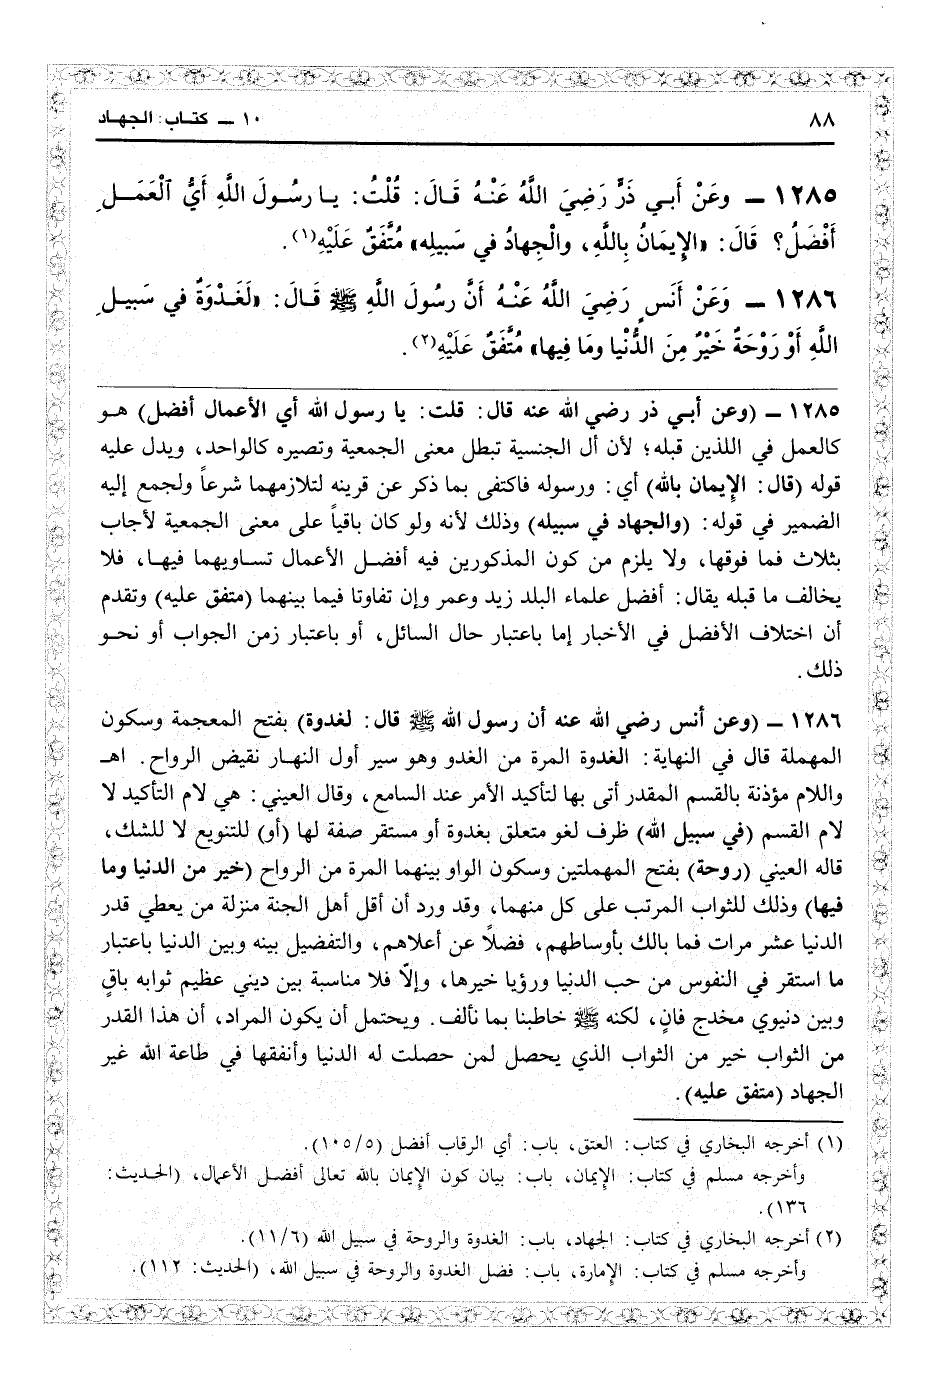 ٨٨
١٠ ــ كتاب: الجهاد
١٢٨٥ ــ وعَنْ أَبي ذَرٍّ رَضِيَ اللَّهُ عَنْهُ قَالَ: قُلْتُ: يا رسُولَ اللَّهِ أَيُّ الْعَمَلِ
أَفْضَلُ؟ قَالَ: «الإِيمَانُ بِاللَّهِ، والْجِهادُ في سَبِيلِه» مُتَّفَقٌ عَلَيْهِ(١).
١٢٨٦ ــ وَعَنْ أَنَسٍ رَضِيَ اللَّهُ عَنْهُ أَنَّ رسُولَ اللَّهِ ﷺ قَالَ: «لَغَدْوَةٌ في سَبيلِ
اللَّهِ أَوْ رَوْحَةٌ خَيْرٌ مِنَ الدُّنْيا ومَا فِيها» مُتَّفَقٌ عَلَيْهِ(٢).
١٢٨٥ ــ (وعن أبي ذر رضي الله عنه قال: قلت: يا رسول الله أي الأعمال أفضل) هو
كالعمل في اللذين قبله؛ لأن أل الجنسية تبطل معنى الجمعية وتصيره كالواحد، ويدل عليه
قوله (قال: الإيمان بالله) أي: ورسوله فاكتفى بما ذكر عن قرينه لتلازمهما شرعاً ولجمع إليه
الضمير في قوله: (والجهاد في سبيله) وذلك لأنه ولو كان باقياً على معنى الجمعية لأجاب
بثلاث فما فوقها، ولا يلزم من كون المذكورين فيه أفضل الأعمال تساويهما فيها، فلا
يخالف ما قبله يقال: أفضل علماء البلد زيد وعمر وإن تفاوتا فيما بينهما (متفق عليه) وتقدم
أن اختلاف الأفضل في الأخبار إما باعتبار حال السائل، أو باعتبار زمن الجواب أو نحو
ذلك.
١٢٨٦ ــ (وعن أنس رضي الله عنه أن رسول الله ﷺ قال: لغدوة) بفتح المعجمة وسكون
المهملة قال في النهاية: الغدوة المرة من الغدو وهو سير أول النهار نقيض الرواح. اهـ
واللام مؤذنة بالقسم المقدر أتى بها لتأكيد الأمر عند السامع، وقال العيني: هي لام التأكيد لا
لام القسم (في سبيل الله) ظرف لغو متعلق بغدوة أو مستقر صفة لها (أو) للتنويع لا للشك،
قاله العيني (روحة) بفتح المهملتين وسكون الواو بينهما المرة من الرواح (خير من الدنيا وما
فيها) وذلك للثواب المرتب على كل منهما، وقد ورد أن أقل أهل الجنة منزلة من يعطي قدر
الدنيا عشر مرات فما بالك بأوساطهم، فضلاً عن أعلاهم، والتفضيل بينه وبين الدنيا باعتبار
ما استقر في النفوس من حب الدنيا ورؤيا خيرها، وإلاّ فلا مناسبة بين ديني عظيم ثوابه باقٍ
وبين دنيوي مخدج فانٍ، لكنه ﷺ خاطبنا بما نألف. ويحتمل أن يكون المراد، أن هذا القدر
من الثواب خير من الثواب الذي يحصل لمن حصلت له الدنيا وأنفقها في طاعة الله غير
الجهاد (متفق عليه).
(١) أخرجه البخاري في كتاب: العتق، باب: أي الرقاب أفضل (١٠٥/٥).
وأخرجه مسلم في كتاب: الإيمان، باب: بيان كون الإيمان بالله تعالى أفضل الأعمال، (الحديث:
١٣٦).
(٢) أخرجه البخاري في كتاب: الجهاد، باب: الغدوة والروحة في سبيل الله (١١/٦).
وأخرجه مسلم في كتاب: الإمارة، باب: فضل الغدوة والروحة في سبيل الله، (الحديث: ١١٢).